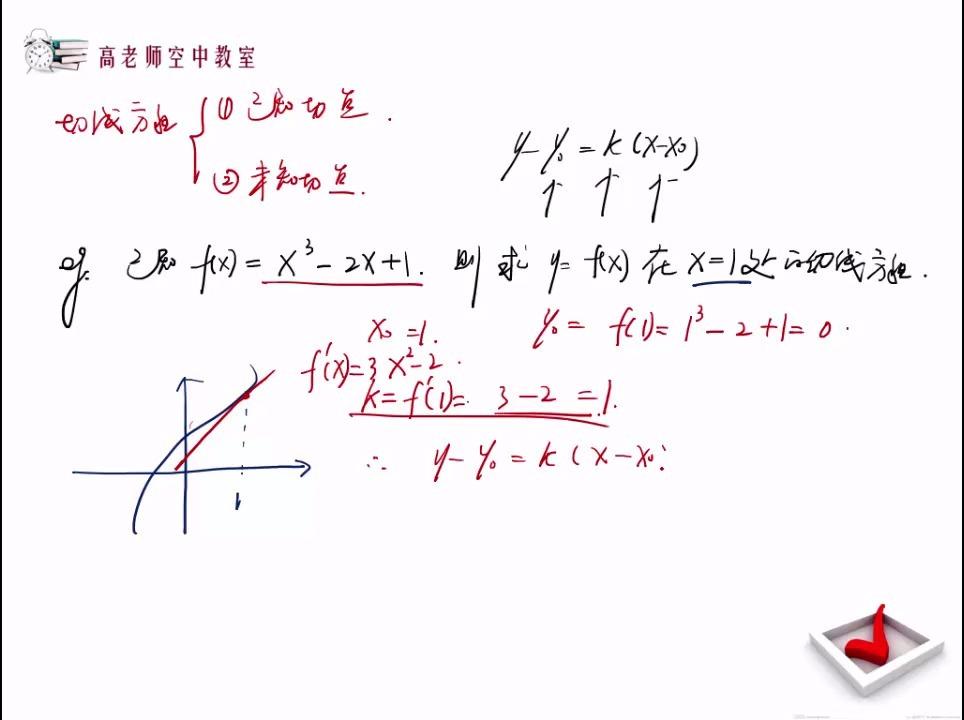 高老师空中教室
切线方程 { ① 已知切点.
② 未知切点.
y-y₀=k(x-x₀)
eg. 已知 f(x)=x³-2x+1. 则求 y=f(x) 在 x=1处的切线方程.
x₀=1. y₀= f(1)=1³-2+1=0.
f'(x)=3x²-2.
k=f'(1)= 3-2=1.
∴ y-y₀=k(x-x₀
1